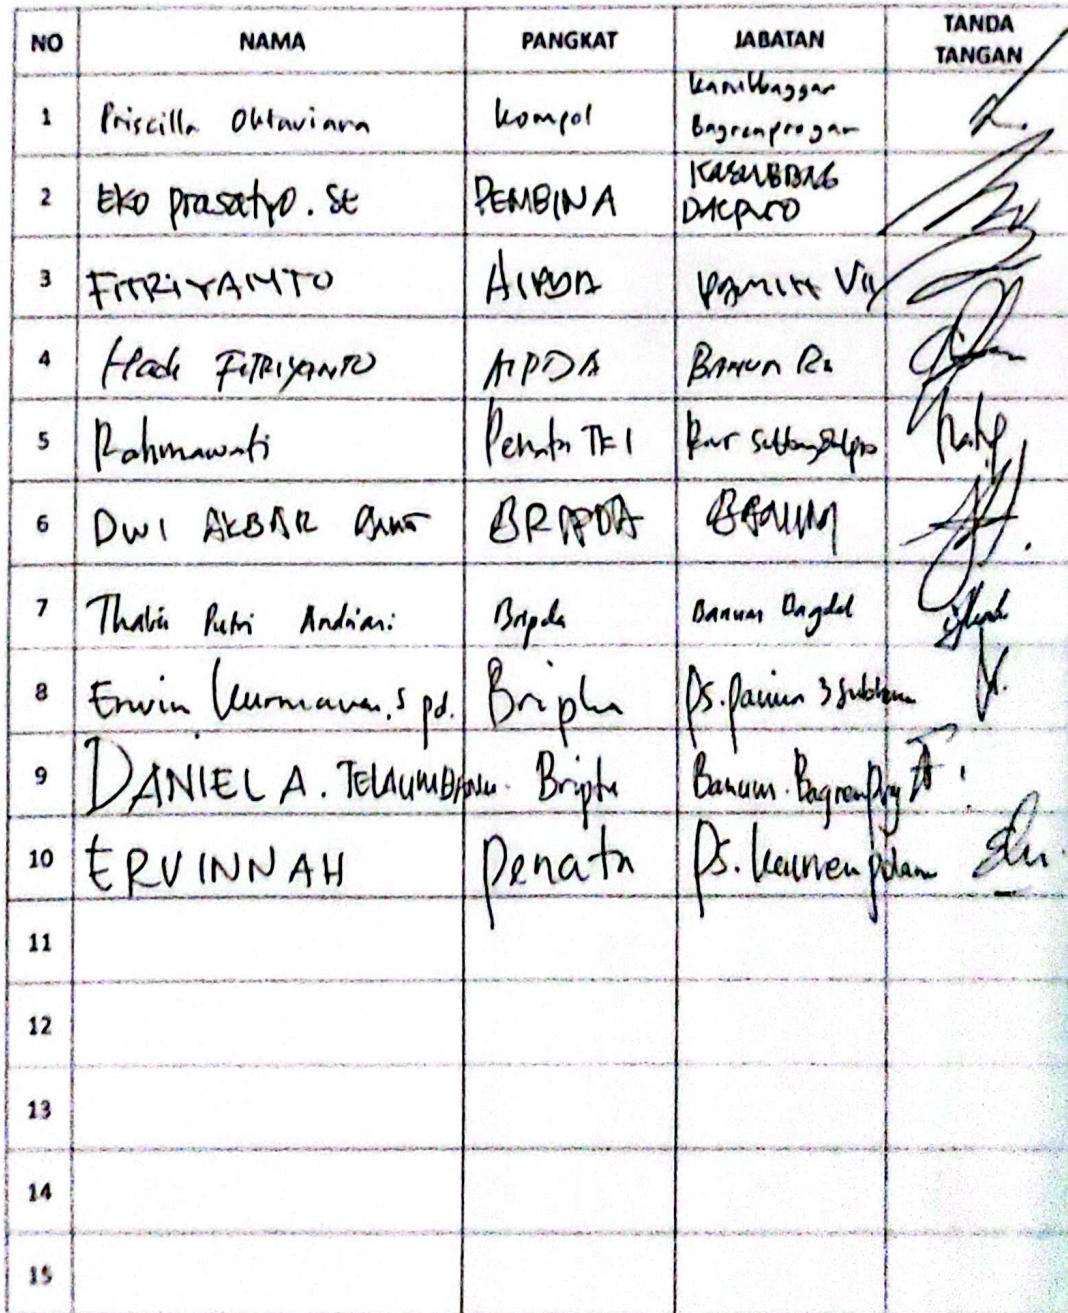 NO NAMA PANGKAT JABATAN TANDA TANGAN
1 Priscilla Oktaviana Kompol Bagrenprogar
2 EKO prasatyo. SE PEMBINA KASUBBAG DALPRO
3 FITRIYANTO AIPDA PAMIN VII
4 Hadi FITRIYANTO AIPDA BANUM
5 Rahmawati Penata TK I
6 DWI AKBAR BRIPDA BANUM
7 Putri Andriani Bripda Banum
8 Erwin Kurniawan, S pd. Bripka Ps. Pamin 3
9 DANIEL A. TELAUMBANUA Briptu Banum
10 ERVINNAH Penata Ps.
11
12
13
14
15